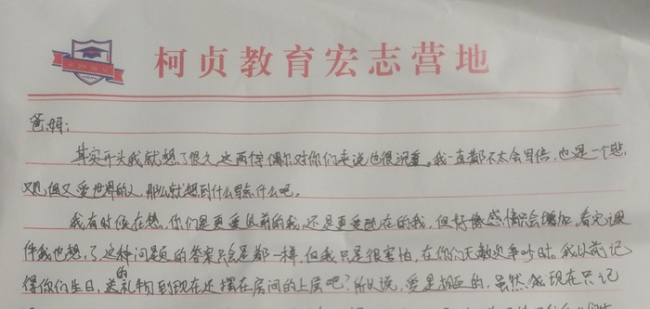 柯贞教育宏志营地
爸妈:
其实开头我就想了很久,这两件偶尔对你们来说也很沉重。我一直都不太会写信,也是一个悲
观但又爱世界的人,那么就想到什么写什么吧。
我有时候在想,你们是更爱以前的我,还是更爱现在的我,但好像感情只会增加,看完课
件我也想了,这种问题的答案只会是都一样,但我只是很害怕,在你们无数次争吵时。我以前记
得你们生日,送的礼物到现在还摆在房间的上层吧?所以说,爱是 的,虽然我现在只记